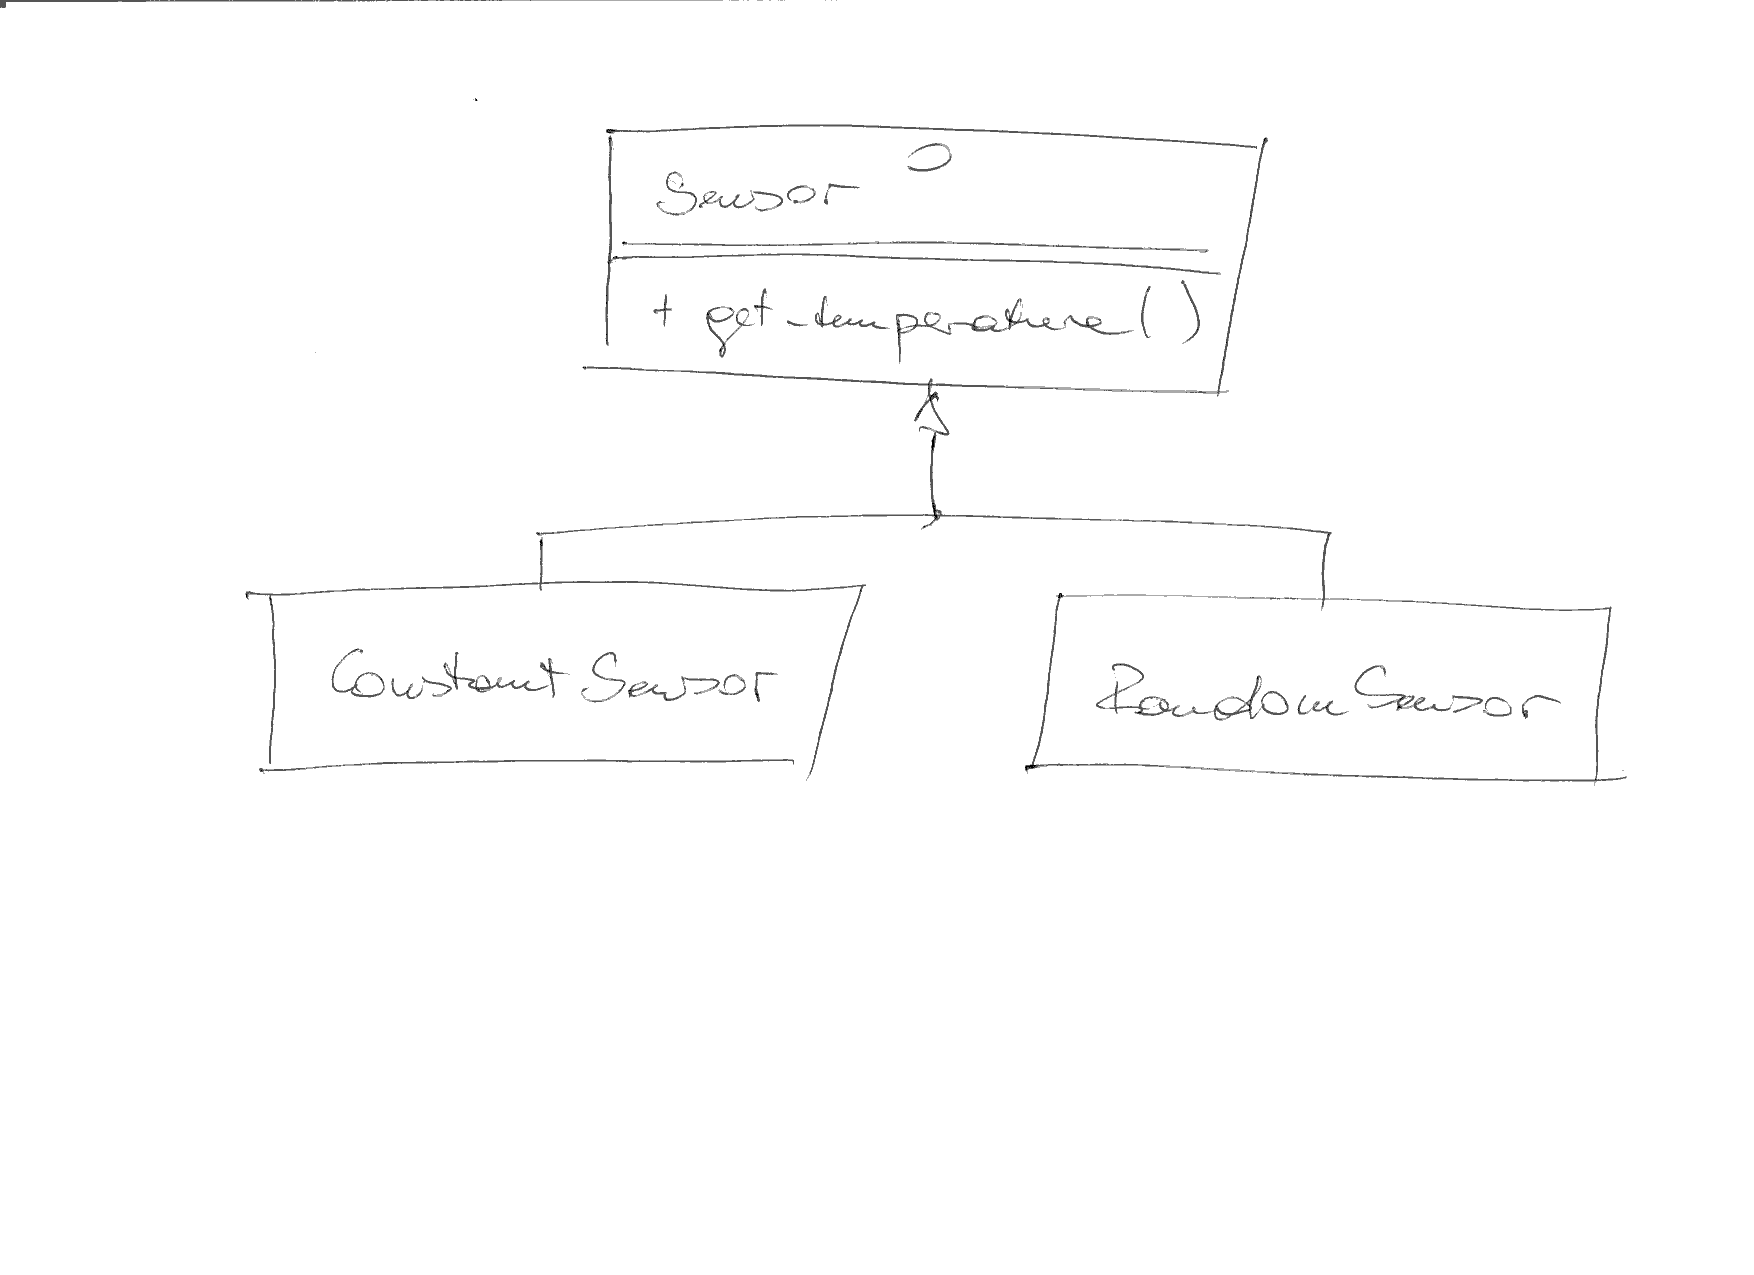 Sensor
+ get_temperature()
ConstantSensor
RandomSensor